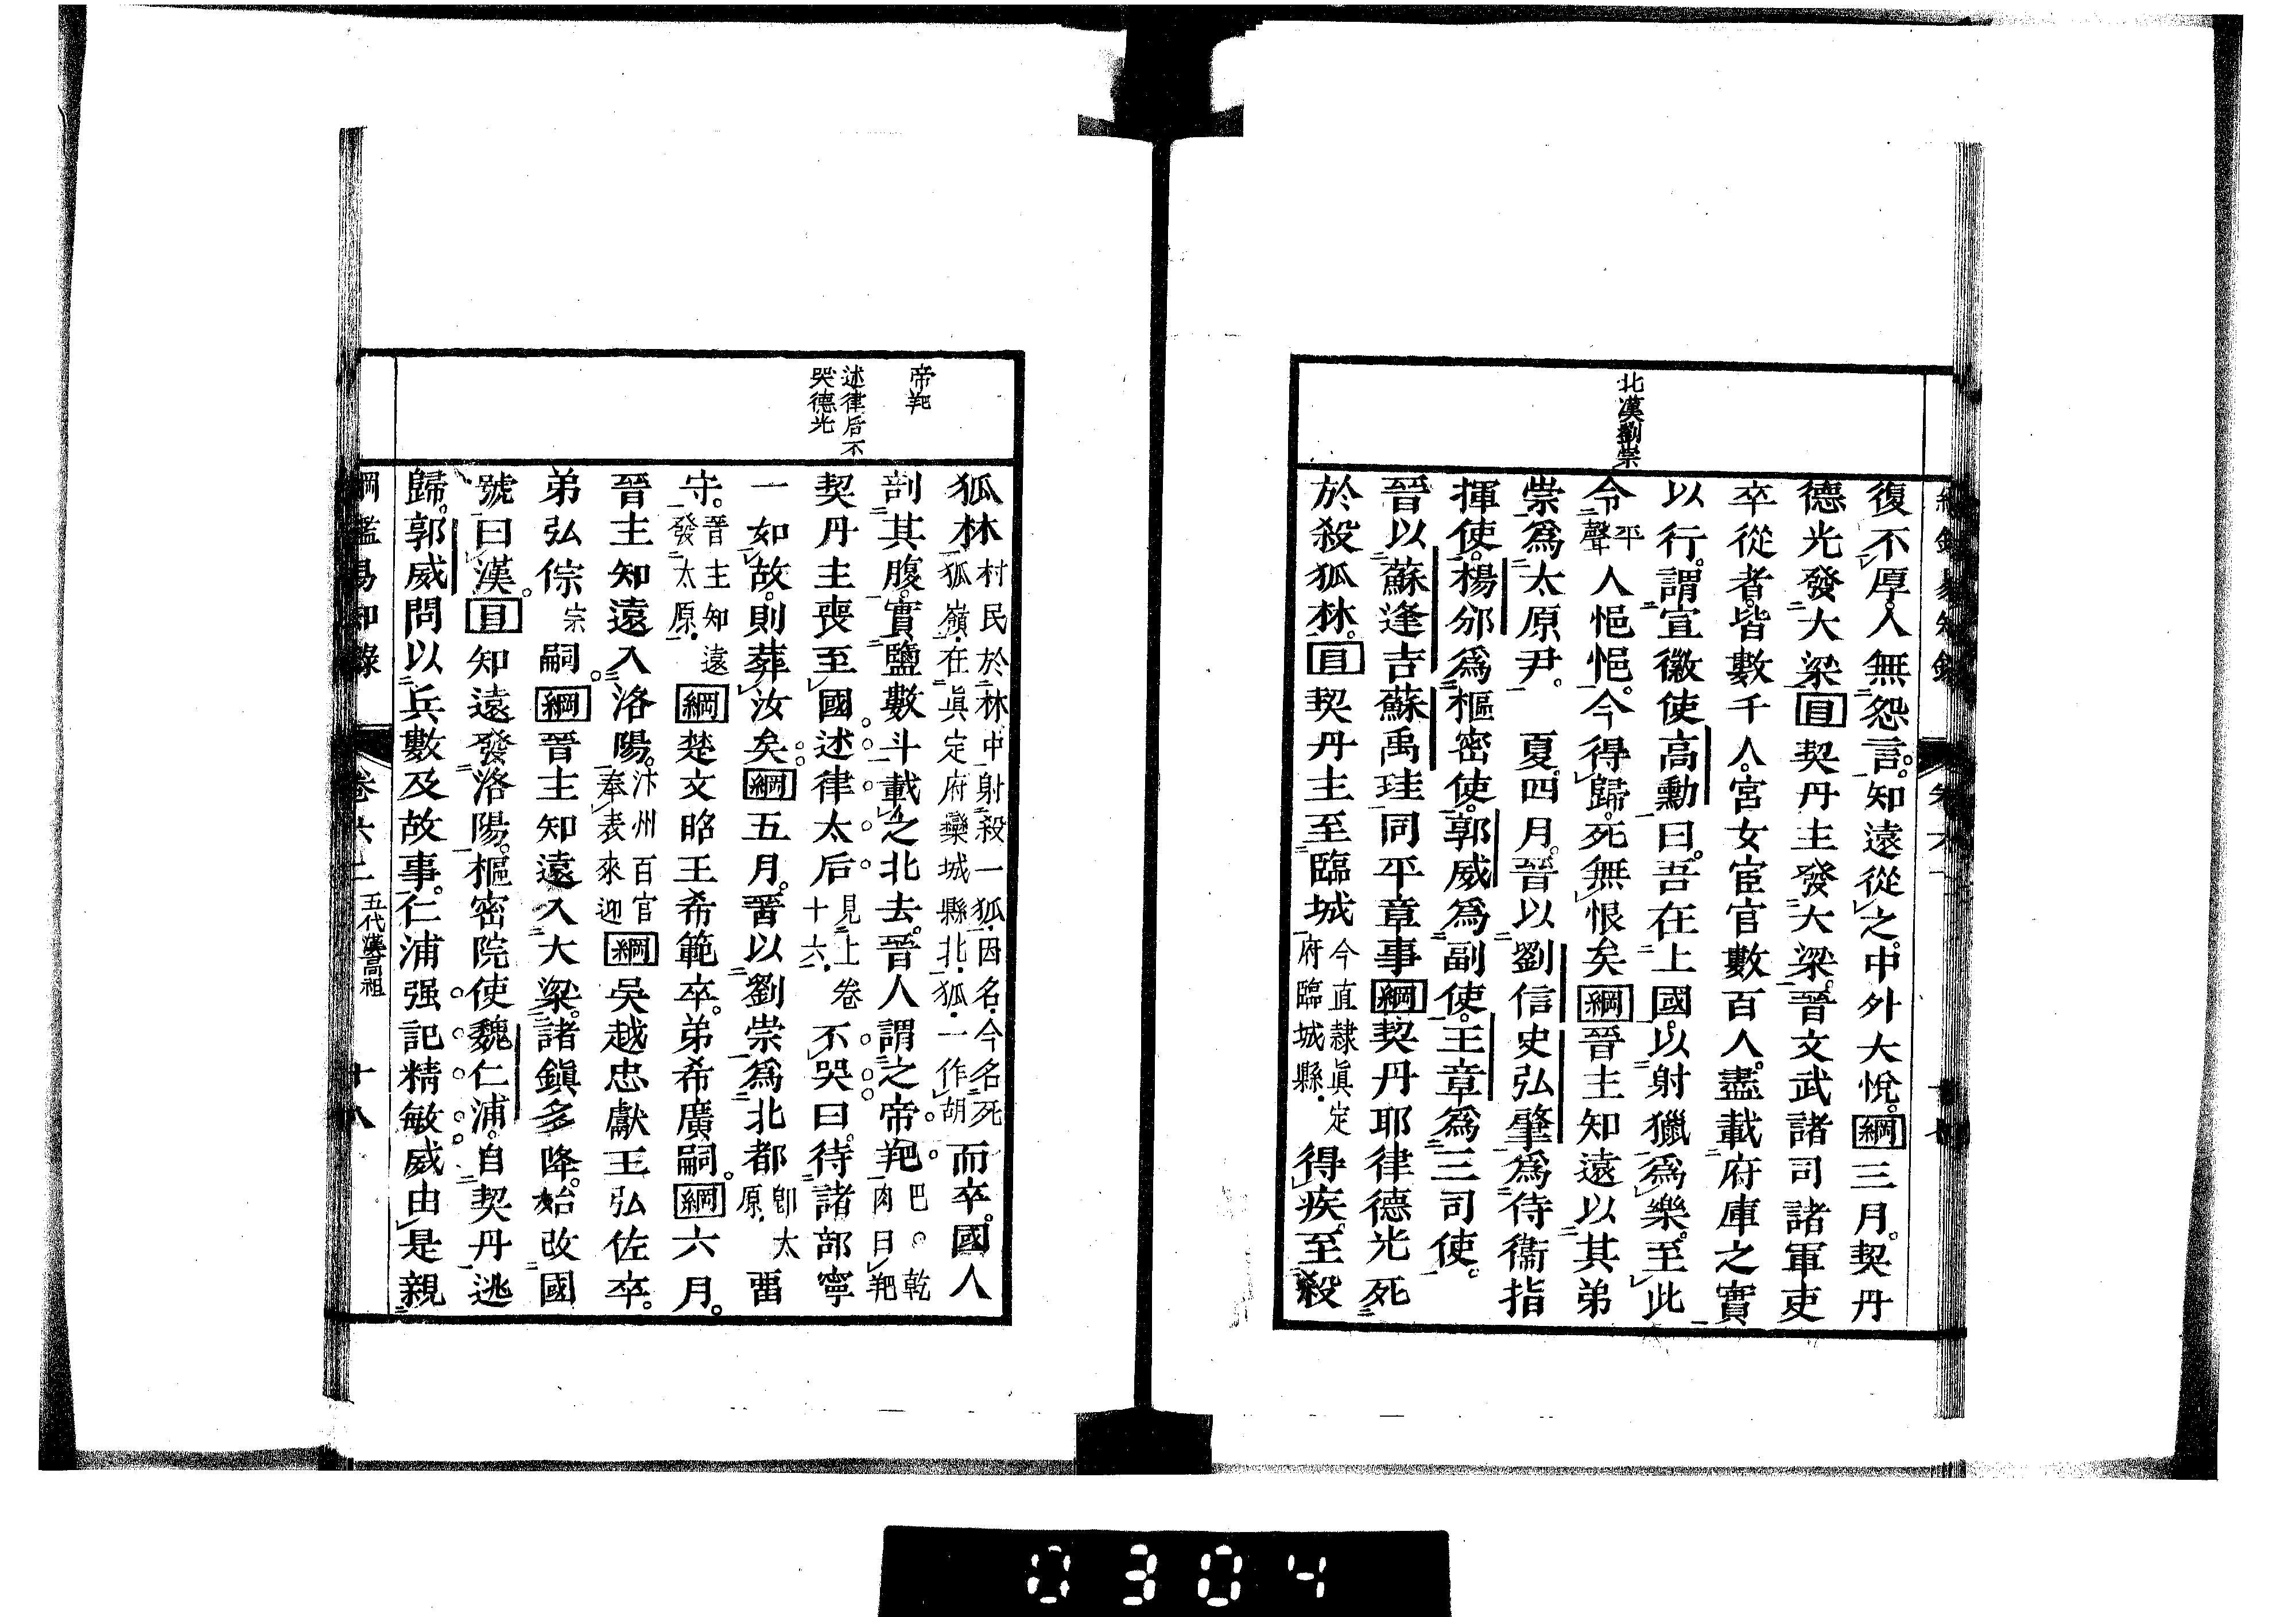 北漢劉崇
復不厚。人無怨言。知遠從之。中外大悅。綱三月。契丹
德光發大梁。目契丹主發大梁。晉文武諸司諸軍吏
卒從者。皆數千人。宮女宦官數百人。盡載府庫之實
以行。謂宣徽使高勳曰。吾在上國。以射獵爲樂。至此
令平聲人悒悒。今得歸。死無恨矣。綱晉主知遠以其弟
崇爲太原尹。 夏。四月。晉以劉信史弘肇爲侍衞指
揮使。楊邠爲樞密使。郭威爲副使。王章爲三司使。
晉以蘇逢吉蘇禹珪同平章事。綱契丹耶律德光死
於殺狐林。目契丹主至臨城今直隷眞定府臨城縣。得疾。至殺
帝羓
述律后不
哭德光
狐林村民於林中射殺一狐。因名。今名死狐嶺。在眞定府欒城縣北。狐。一作胡而卒。國人
剖其腹。實鹽數斗。載之北去。晉人謂之帝羓。巴。乾肉曰羓
契丹主喪至國。述律太后見上卷十六。不哭曰。待諸部寧
一如故。則葬汝矣。綱五月。晉以劉崇爲北都卽太原。畱
守。晉主知遠發太原。綱楚文昭王希範卒。弟希廣嗣。綱六月。
晉主知遠入洛陽。汴州百官奉表來迎綱吳越忠獻王弘佐卒。
弟弘倧宗嗣。綱晉主知遠入大梁。諸鎭多降。始改國
號曰漢。目知遠發洛陽。樞密院使魏仁浦。自契丹逃
歸。郭威問以兵數及故事。仁浦强記精敏。威由是親
綱鑑易知錄 卷六二 五代漢高祖 十八
0304